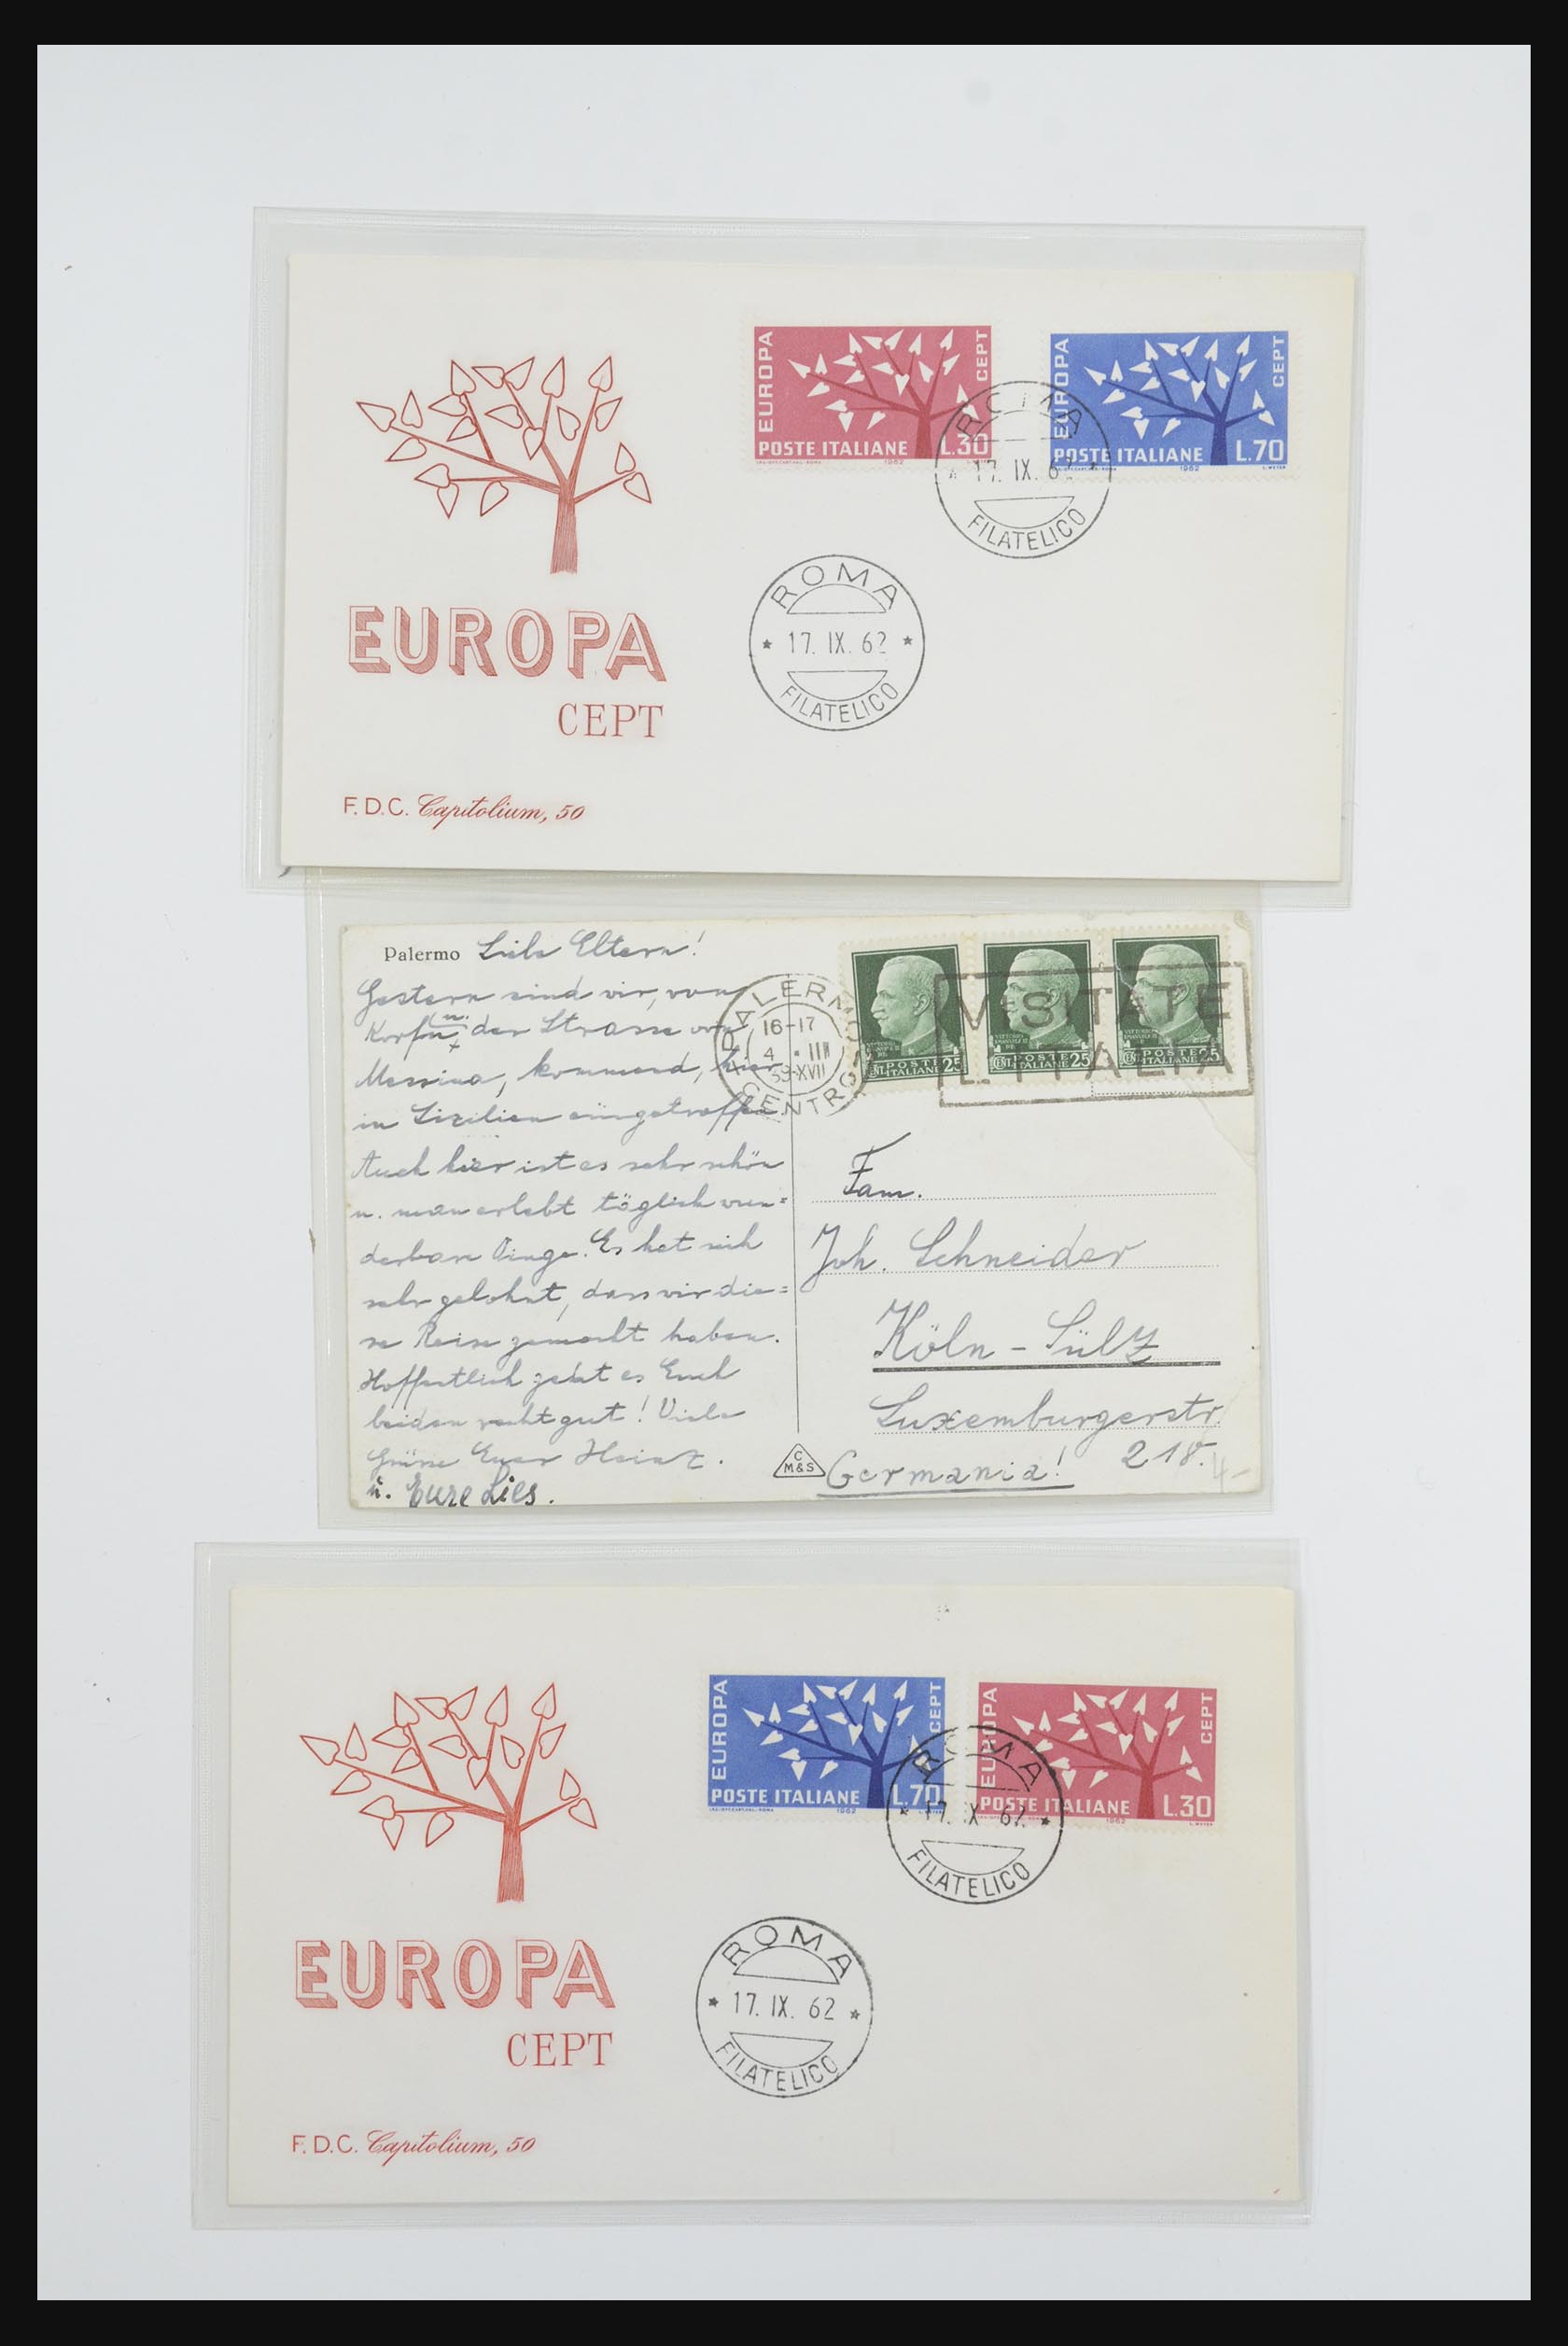 EUROPA CEPT
POSTE ITALIANE L.30
1962
EUROPA CEPT
POSTE ITALIANE L.70
1962
ROMA
* 17. IX. 62 *
FILATELICO
ROMA
* 17. IX. 62 *
FILATELICO
EUROPA
CEPT
F.D.C. Capitolium, 50
Palermo Liebe Eltern!
Gestern sind wir, von
Korfu u. der Strasse von
Messina, kommend, hier
in Sizilien eingetroffen.
Auch hier ist es sehr schön
u. man erlebt täglich wun=
derbare Dinge. Es hat sich
sehr gelohnt, dass wir die=
se Reise gemacht haben.
Hoffentlich geht es Euch
beiden recht gut! Viele
Grüsse Euer Heinz.
u. Eure Lies.
PALERMO
16-17
4 · III
39·XVII
CENTRO
VISITATE
L'ITALIA
POSTE ITALIANE CENT 25
POSTE ITALIANE CENT 25
POSTE ITALIANE CENT 25
Fam.
Joh. Schneider
Köln - Sülz
Luxemburgerstr.
218.
Germania!
4-
C
M&S
EUROPA CEPT
POSTE ITALIANE L.70
1962
EUROPA CEPT
POSTE ITALIANE L.30
1962
ROMA
* 17. IX 62. *
FILATELICO
ROMA
* 17. IX. 62 *
FILATELICO
EUROPA
CEPT
F.D.C. Capitolium, 50